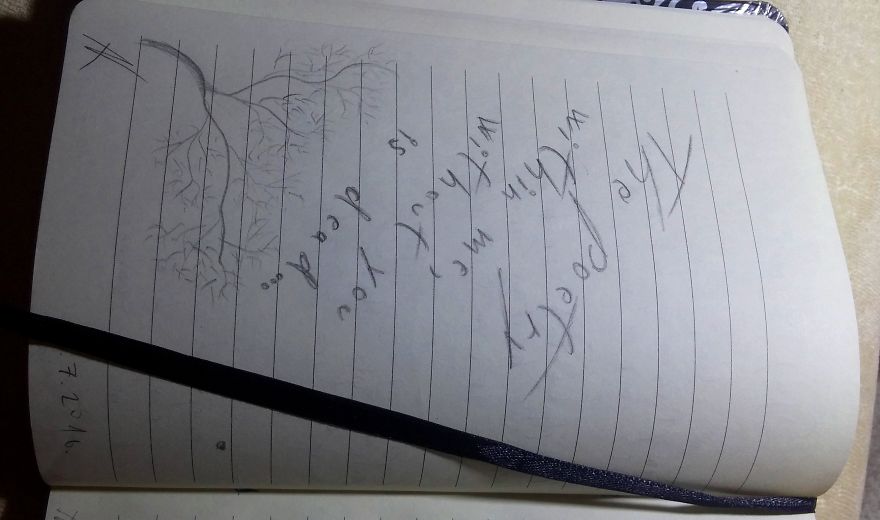 The
Poetry
within me,
without You
is dead...
7. 2016.